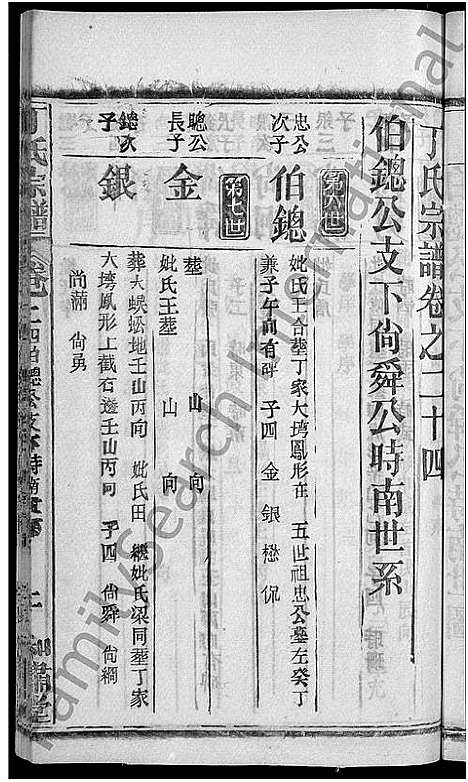 丁氏宗譜卷之二十四
伯鍯公支下尙舜公時南世系
第六世
忠公
次子
伯鍯
妣氏王合塟丁家大塆鳳形在 五世祖忠公墓左癸丁
兼子午向有碑 子四 金 銀 懋 侃
第七世
聰公
長子
金
塟 山 向
妣氏王塟 山 向
鍯次
子
銀
葬大蜈蚣地壬山丙向 妣氏田 繼妣氏梁同塟丁家
大塆鳳形上截右邊壬山丙向 子四 尙舜 尙綱
尚滿 尙勇
丁氏宗譜
FamilySearch International